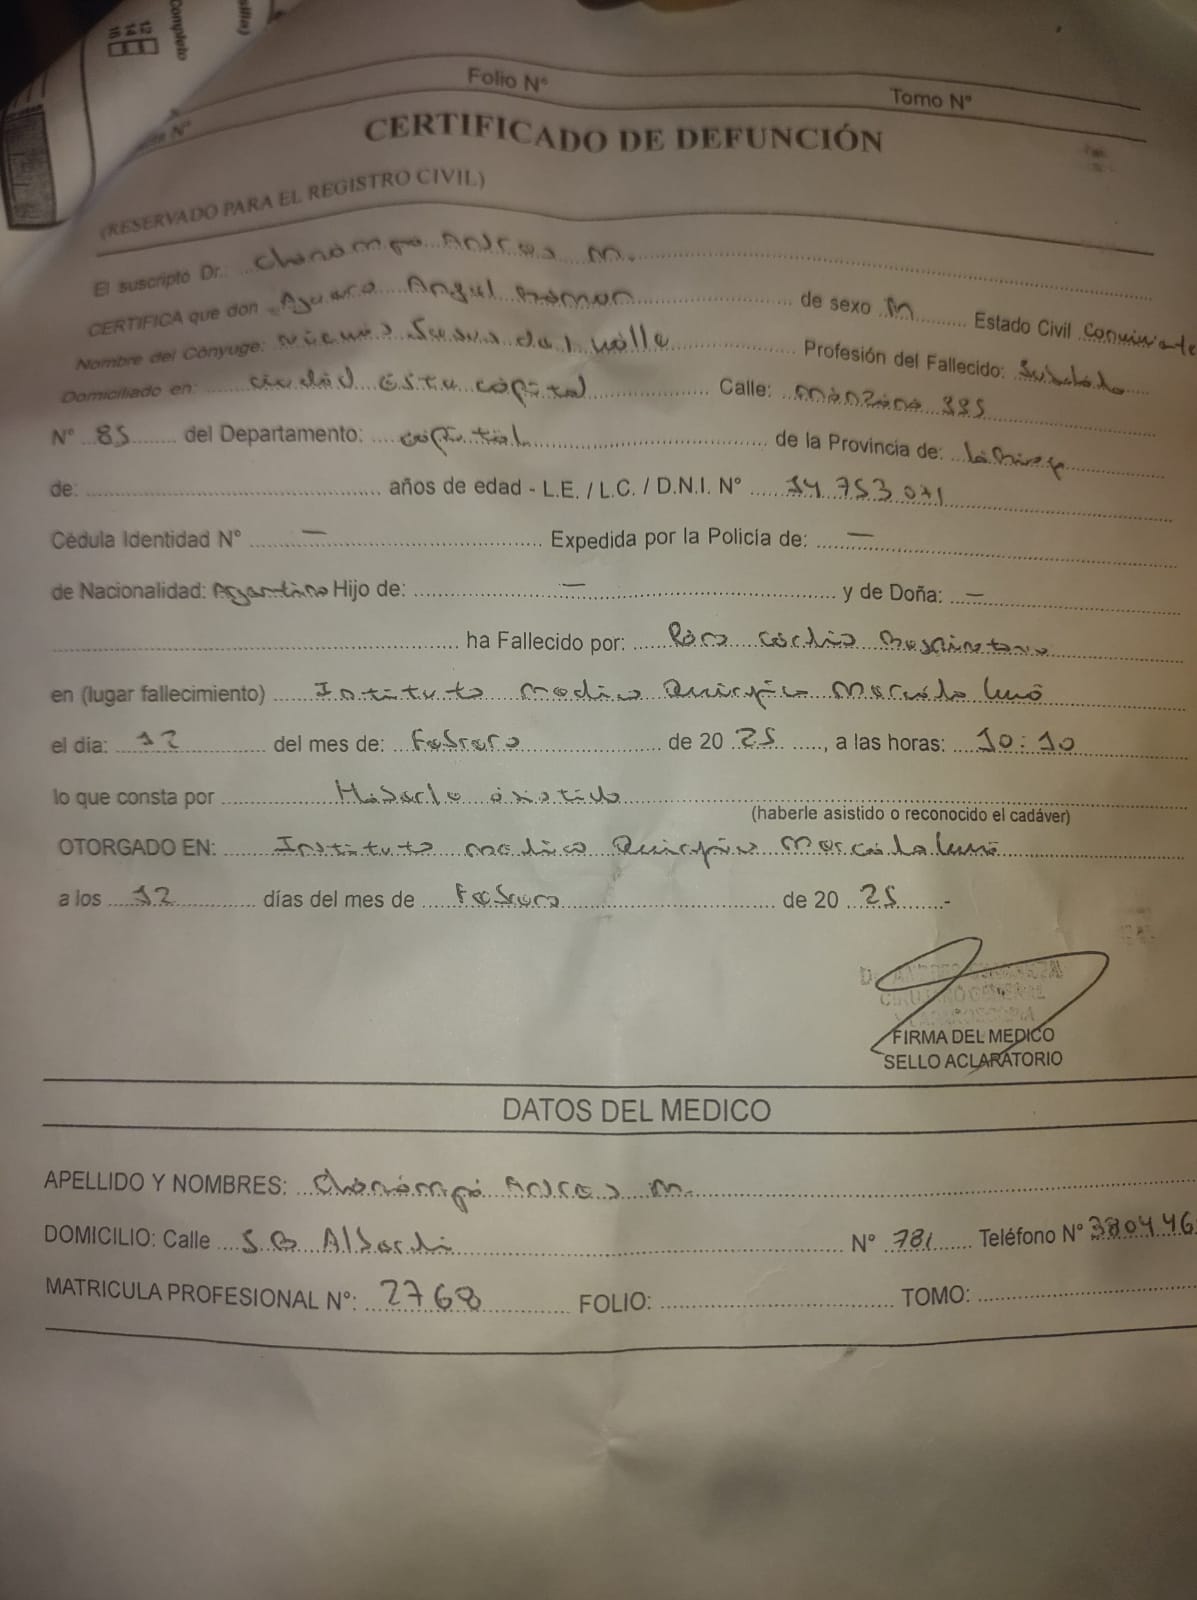 Completo
12
14
16
Folio N° Tomo N°
CERTIFICADO DE DEFUNCIÓN
(RESERVADO PARA EL REGISTRO CIVIL)
El suscripto Dr.: M.
CERTIFICA que don Angel Roman de sexo M Estado Civil Conviviente
Nombre del Cónyuge: del Valle Profesión del Fallecido:
Domiciliado en: ciudad esta capital Calle: manzana 335
N° 85 del Departamento: capital de la Provincia de: La Rioja
de: años de edad - L.E. / L.C. / D.N.I. N° 14 753 071
Cédula Identidad N° — Expedida por la Policía de: —
de Nacionalidad: Argentino Hijo de: — y de Doña: —
ha Fallecido por: Paro Cardio Respiratorio
en (lugar fallecimiento) Instituto medico Quirúrgico
el dia: 12 del mes de: Febrero de 20 25, a las horas: 10:10
lo que consta por Haberlo asistido
(haberle asistido o reconocido el cadáver)
OTORGADO EN: Instituto medico Quirúrgico
a los 12 días del mes de Febrero de 20 25.-
CIRUJANO GENERAL
FIRMA DEL MEDICO
SELLO ACLARATORIO
DATOS DEL MEDICO
APELLIDO Y NOMBRES: M.
DOMICILIO: Calle J B Alberdi N° 781 Teléfono N° 380446
MATRICULA PROFESIONAL N°: 2768 FOLIO: TOMO: